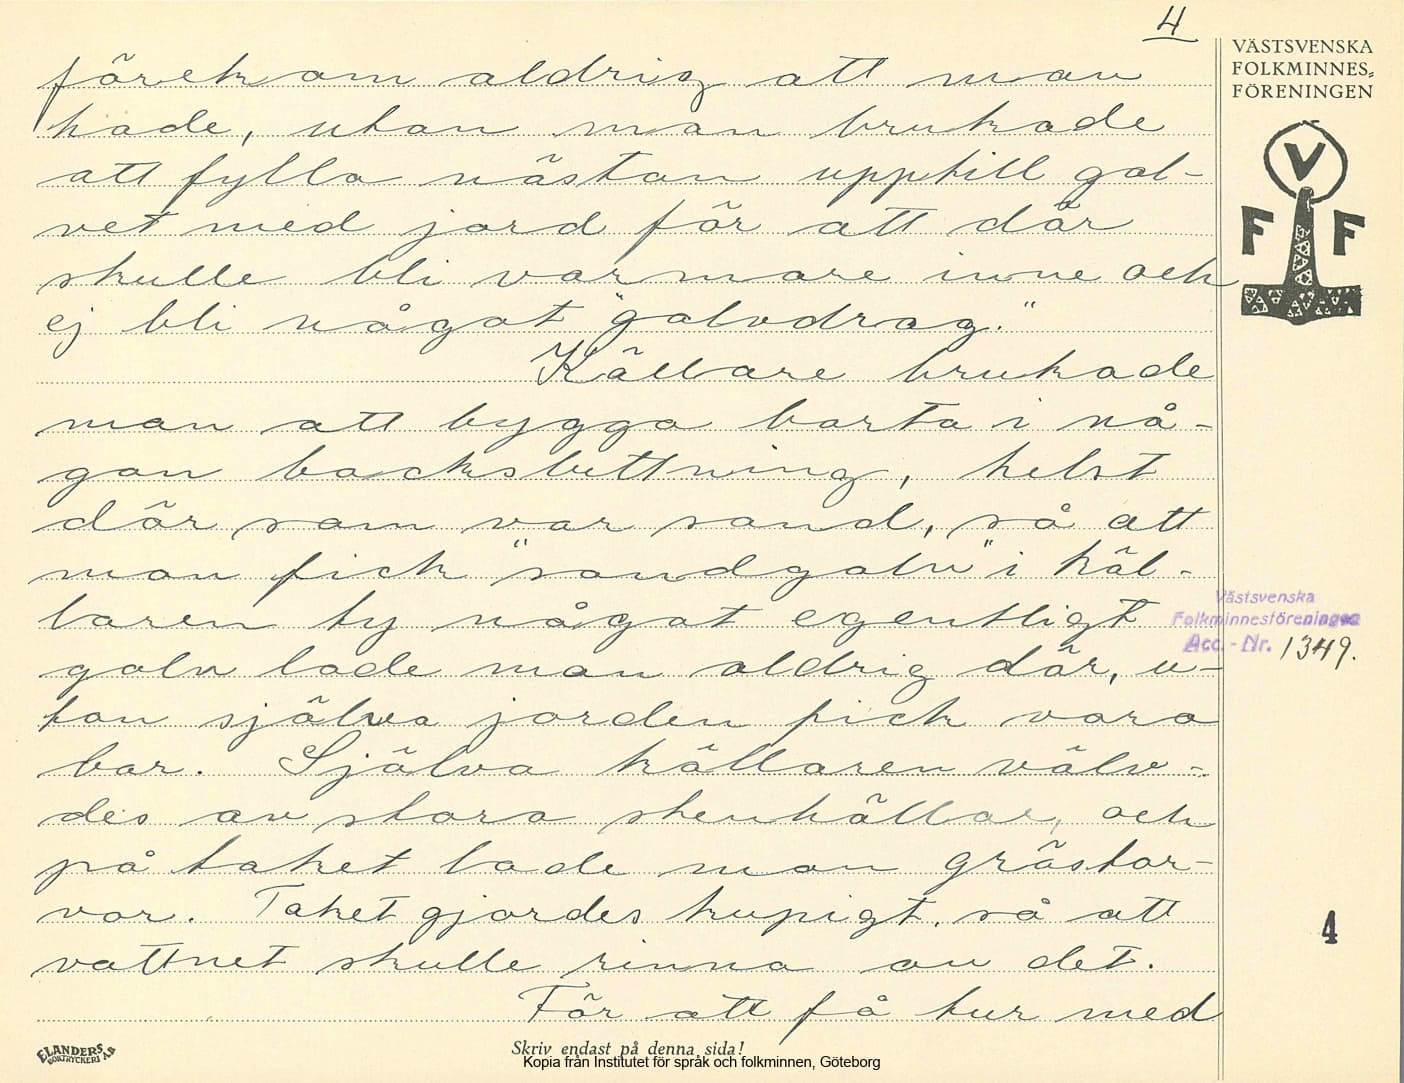 4
VÄSTSVENSKA
FOLKMINNES-
FÖRENINGEN
V
F F
förekom aldrig att man
hade, utan man brukade
att fylla nästan upptill gol-
vet med jord för att där
skulle bli varmare inne och
ej bli något "golvdrag."
Källare brukade
man att bygga borta i nå-
gon backsluttning, helst
där som var sand, så att
man fick "sandgolv" i käl-
laren ty något egentligt
golv lade man aldrig där, u-
tan själva jorden fick vara
bar. Själva källaren välv-
des av stora stenhällar, och
på taket lade man grästor-
vor. Taket gjordes kupigt, så att
vattnet skulle rinna av det.
För att få tur med
Västsvenska
Folkminnesföreningen
Acc.-Nr. 1349.
4
ELANDERS
BOKTRYCKERI AB
Skriv endast på denna sida!
Kopia från Institutet för språk och folkminnen, Göteborg